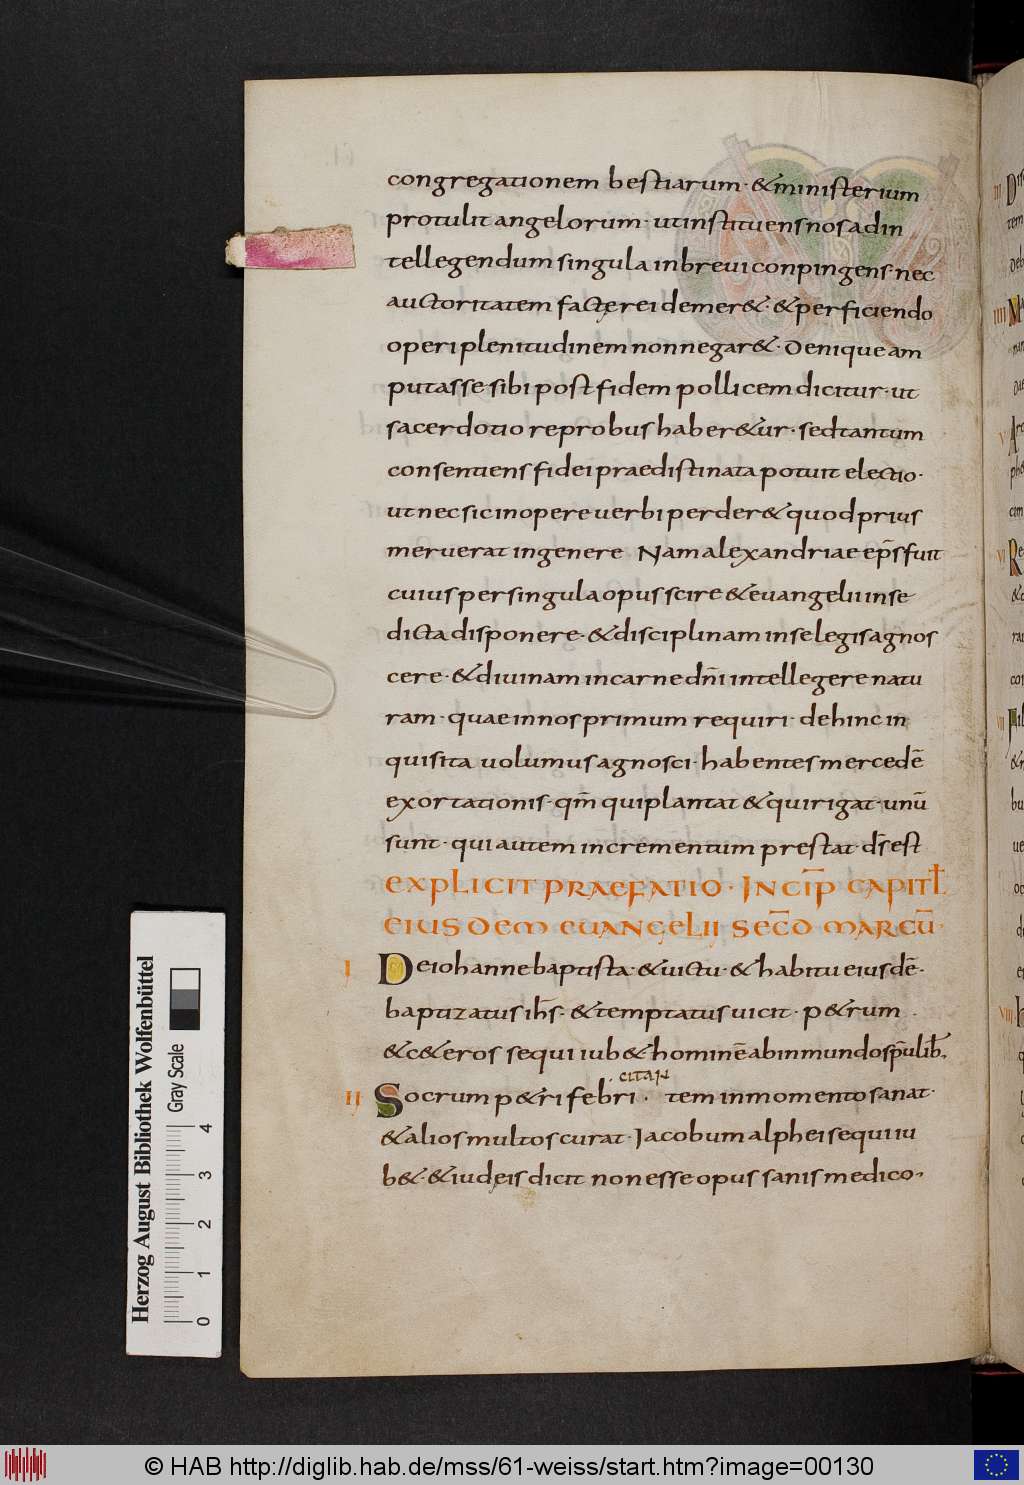 congregationem bestiarum· &ministerium
protulit angelorum· utinstituens nos adin
tellegendum singula inbreui conpingens· nec
auctoritatem factę rei demer&· &perficiendo
operi plenitudinem non negar&· Denique am
putasse sibi post fidem pollicem dicitur· ut
sacerdotio reprobus haber&ur· sedtantum
consentiens fidei praedistinata potuit electio·
ut nec sic inopere uerbi perder& quod prius
meruerat in genere Nam alexandriae ep̄s fuit
cuius per singula opus scire &euangelii in se
dicta disponere· &disciplinam in se legis agnos
cere· &diuinam in carne dn̄i intellegere natu
ram· quae in nos primum requiri· dehinc in
quisita uolumus agnosci· habentes mercedē
exortationis· qm̄ qui plantat &qui rigat· unū
sunt· qui autem incrementum prestat· ds̄ est
EXPLICIT PRAEFATIO· INCIP̄ CAPITL̄
EIUSDEM EUANGELII SEC̄D MARCŪ·
I De iohanne baptista· &uictu· &habitu eiusdē·
baptizatus ih̄s· &temptatus uicit· p&rum
&c&eros sequi iub& hominē ab inmundo sp̄u lib̄·
citan
II Socrum p&ri febri· tem in momento sanat·
&alios multos curat· Iacobum alphei sequi iu
b&· &iudęis dicit non esse opus sanis medico·
III
IIII
V
VI
VII
VIII
Herzog August Bibliothek Wolfenbüttel
Gray Scale
0 1 2 3 4
© HAB http://diglib.hab.de/mss/61-weiss/start.htm?image=00130